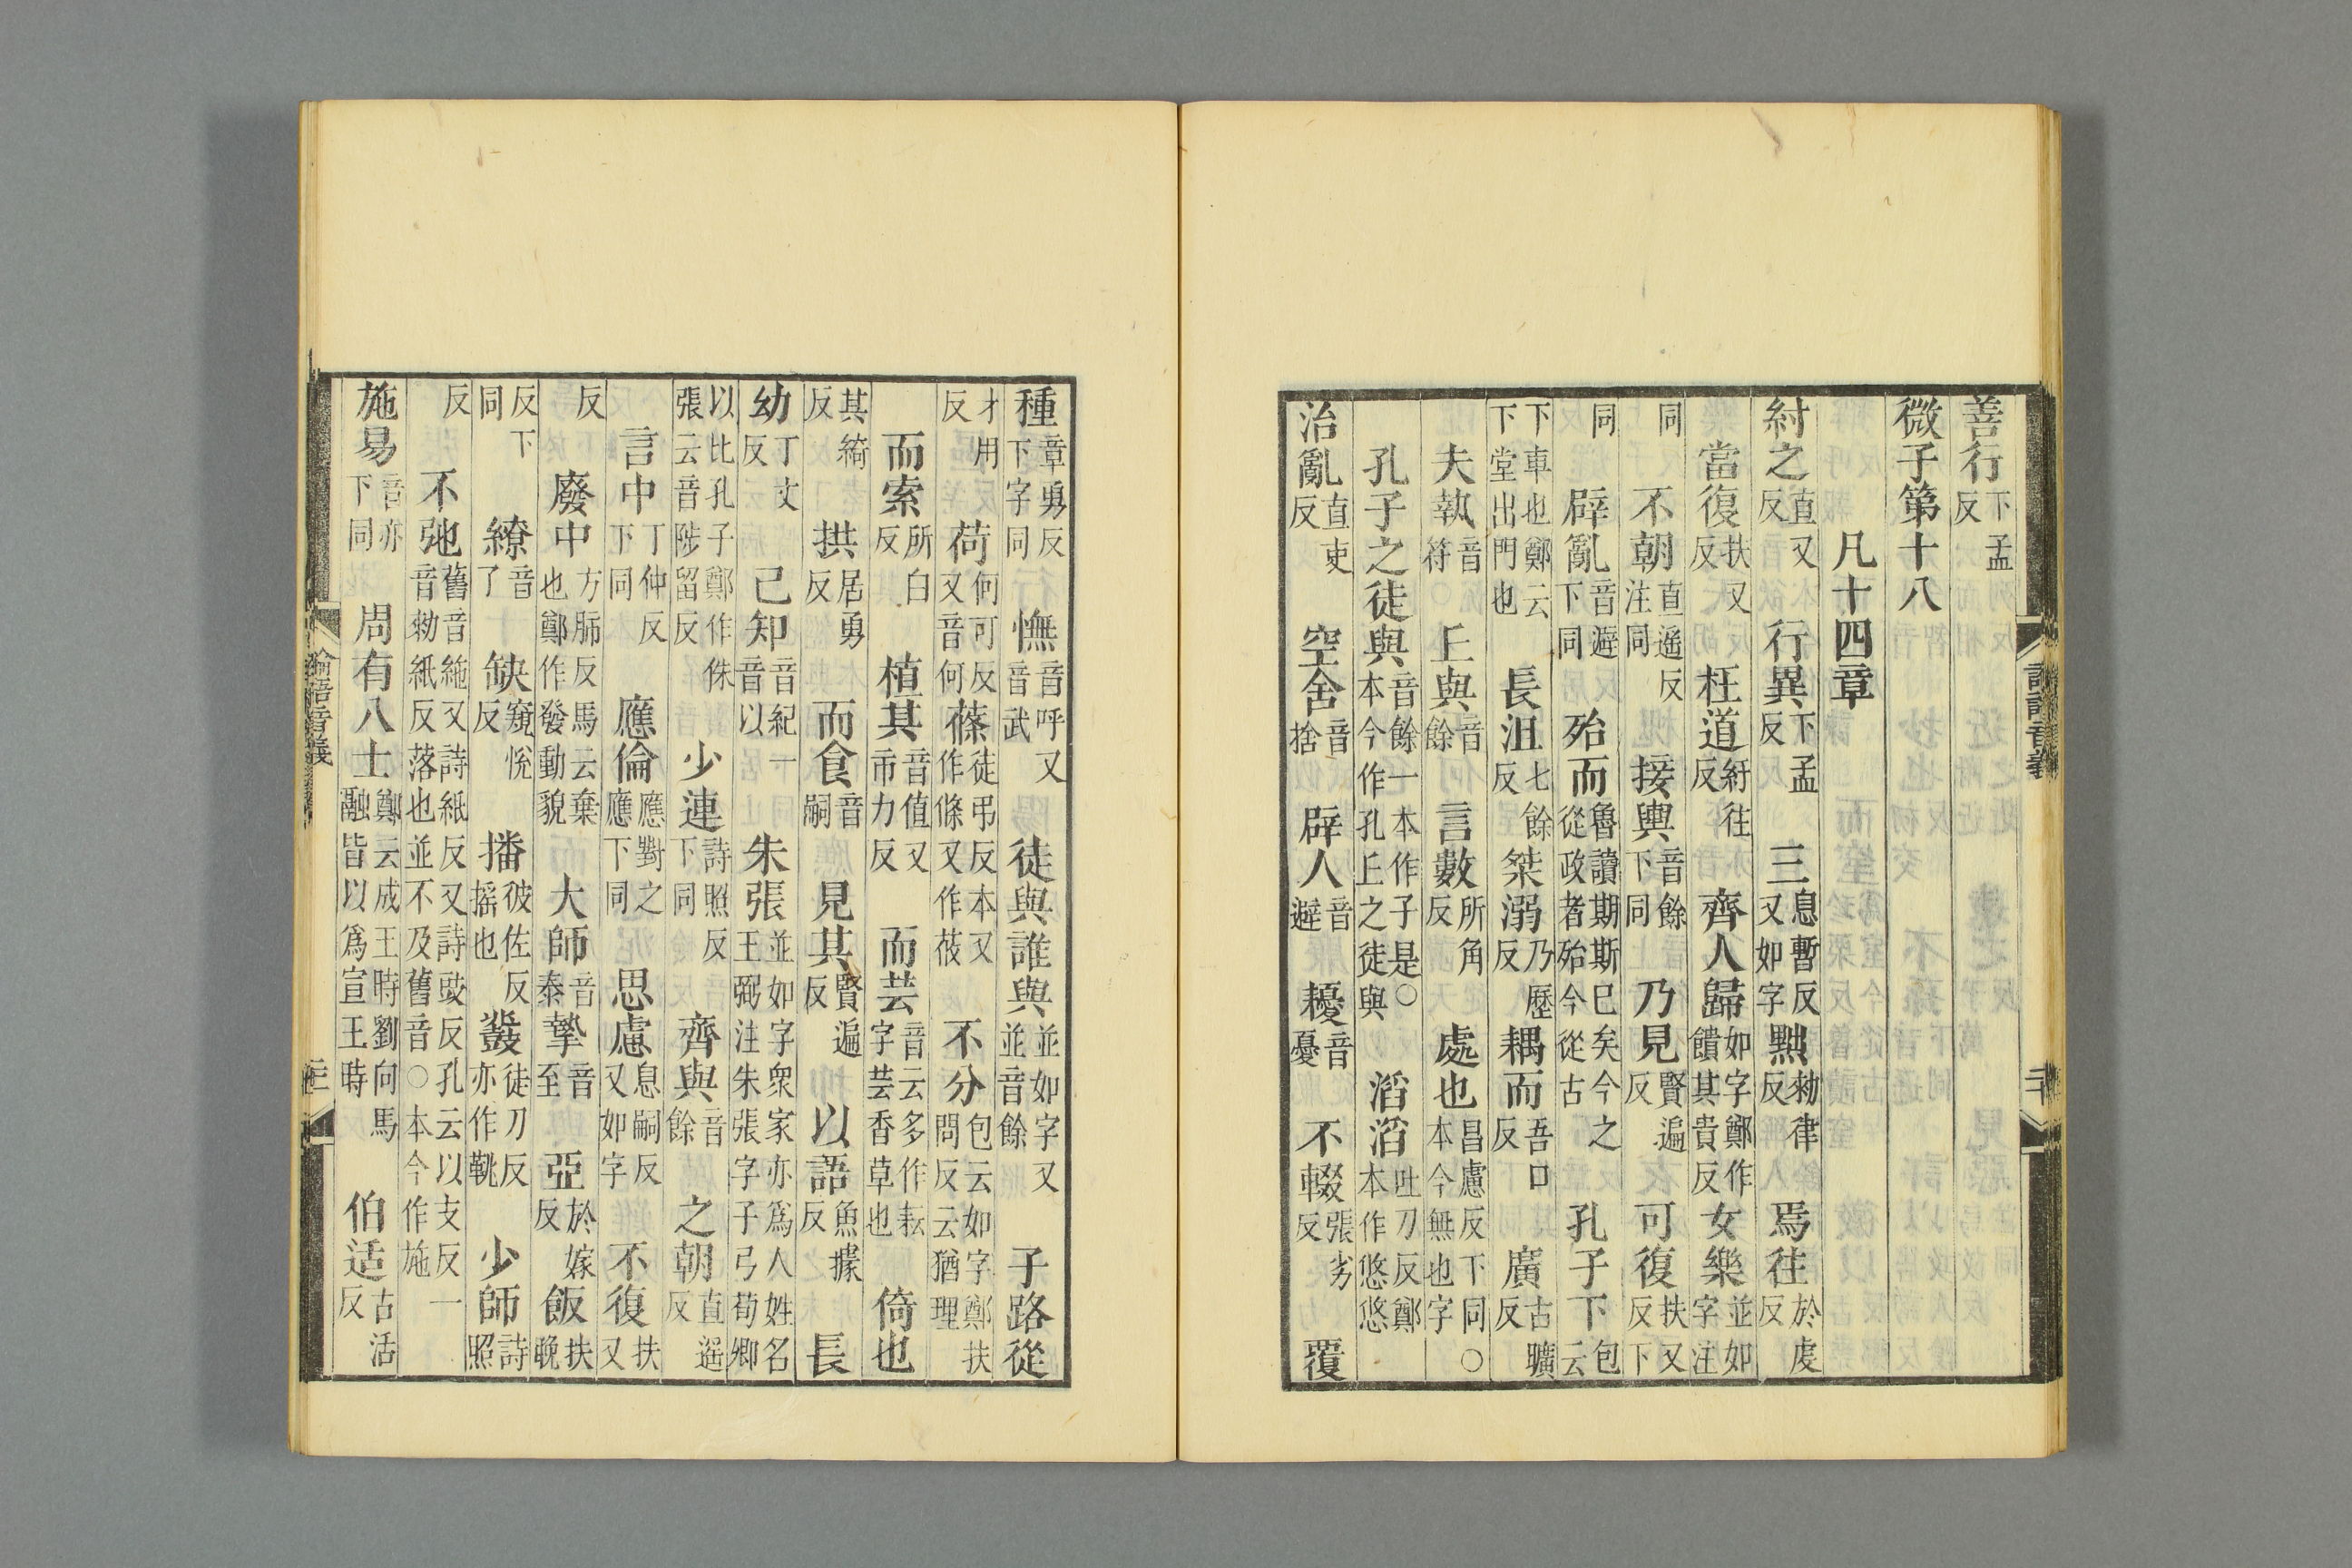 善行下孟反
微子第十八
凡十四章
紂之直又反 行異下孟反 三息暫反又如字 黜勑律反 焉往於虔反
當復扶又反 枉道紆往反 齊人歸如字鄭作饋其貴反 女樂並如字注
同 不朝直遙反注同 接輿音餘下同 乃見賢遍反 可復扶又反下
同 辟亂音避下同 殆而魯讀期斯已矣今之從政者殆今從古 孔子下包云
下車也鄭云下堂出門也 長沮七餘反 桀溺乃歷反 耦而吾口反 廣古曠反
夫執音符 丘與音餘 言數所角反 處也昌慮反下同○本今無也字
孔子之徒與音餘一本作子是○本今作孔丘之徒與 滔滔吐刀反鄭本作悠悠
治亂直吏反 空舍音捨 辟人音避 耰音憂 不輟張劣反 覆
種章勇反下字同 憮音呼又音武 徒與誰與並如字又並音餘 子路從
才用反 荷何可反又音何 蓧徒弔反本又作條又作莜 不分包云如字鄭扶問反云猶理
而索所白反 植其音值又市力反 而芸音云多作耘字芸香草也 倚也
其綺反 拱居勇反 而食音嗣 見其賢遍反 以語魚據反 長
幼丁丈反 己知音紀一音以 朱張並如字眾家亦爲人姓名王弼注朱張字子弓荀卿
以比孔子鄭作侏張云音陟留反 少連詩照反下同 齊與音餘 之朝直遙反
言中丁仲反下同 應倫應對之應下同 思慮息嗣反又如字 不復扶又
反 廢中方肺反馬云棄也鄭作發動貌 大師音泰 摯音至 亞於嫁反 飯扶晚
反下同 繚音了 缺窺悅反 播彼佐反搖也 鼗徒刀反亦作鞉 少師詩照
反 不弛舊音絁又詩紙反又詩豉反孔云以支反一音勑紙反落也並不及舊音○本今作施
施易音亦下同 周有八士鄭云成王時劉向馬融皆以爲宣王時 伯适古活反
論語音義